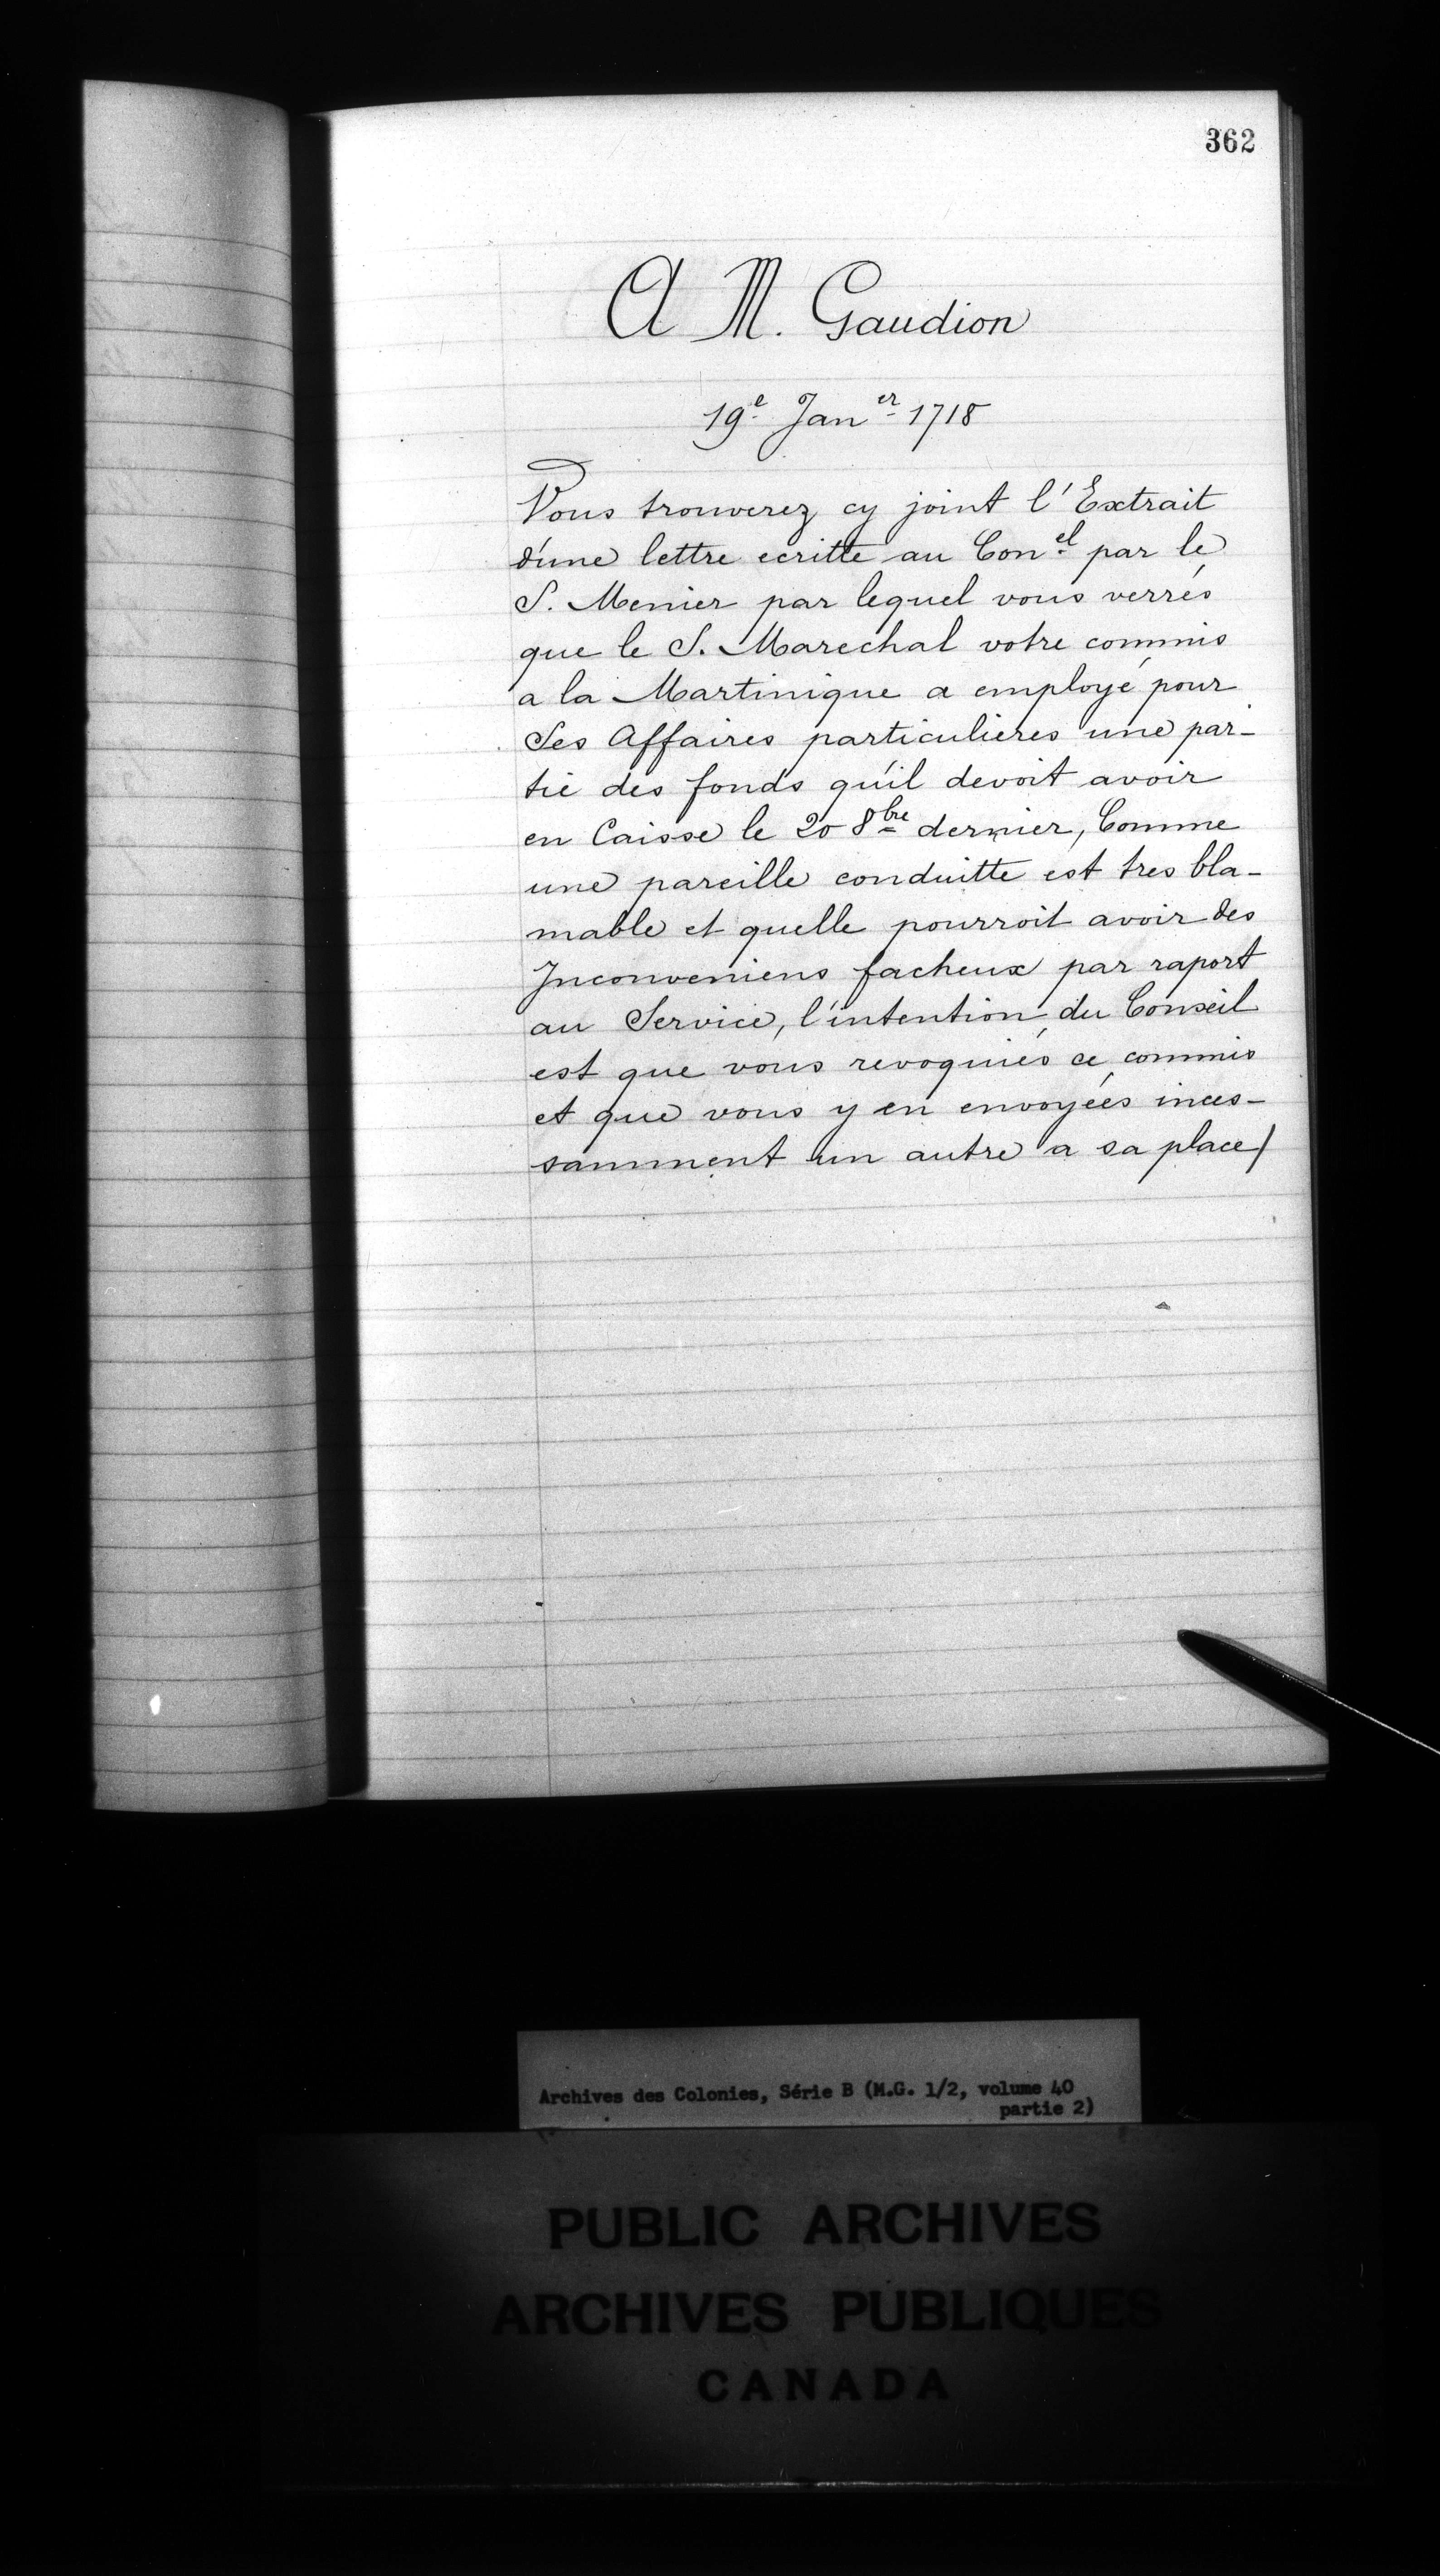 362
A M. Gaudion
19e Janer 1718
Vous trouverez cy joint l'Extrait
d'une lettre ecritte au Conel par le
S. Menier par lequel vous verrés
que le S. Marechal votre commis
a la Martinique a employé pour
Ses Affaires particulieres une par-
tie des fonds qu'il devoit avoir
en Caisse le 20 8bre dernier, Comme
une pareille conduitte est tres bla-
mable et quelle pourroit avoir des
Inconveniens facheux par raport
au Service, l'intention du Conseil
est que vous revoquiés ce commis
et que vous y en envoyées inces-
samment un autre a sa place/
Archives des Colonies, Série B (M.G. 1/2, volume 40
partie 2)
PUBLIC ARCHIVES
ARCHIVES PUBLIQUES
CANADA